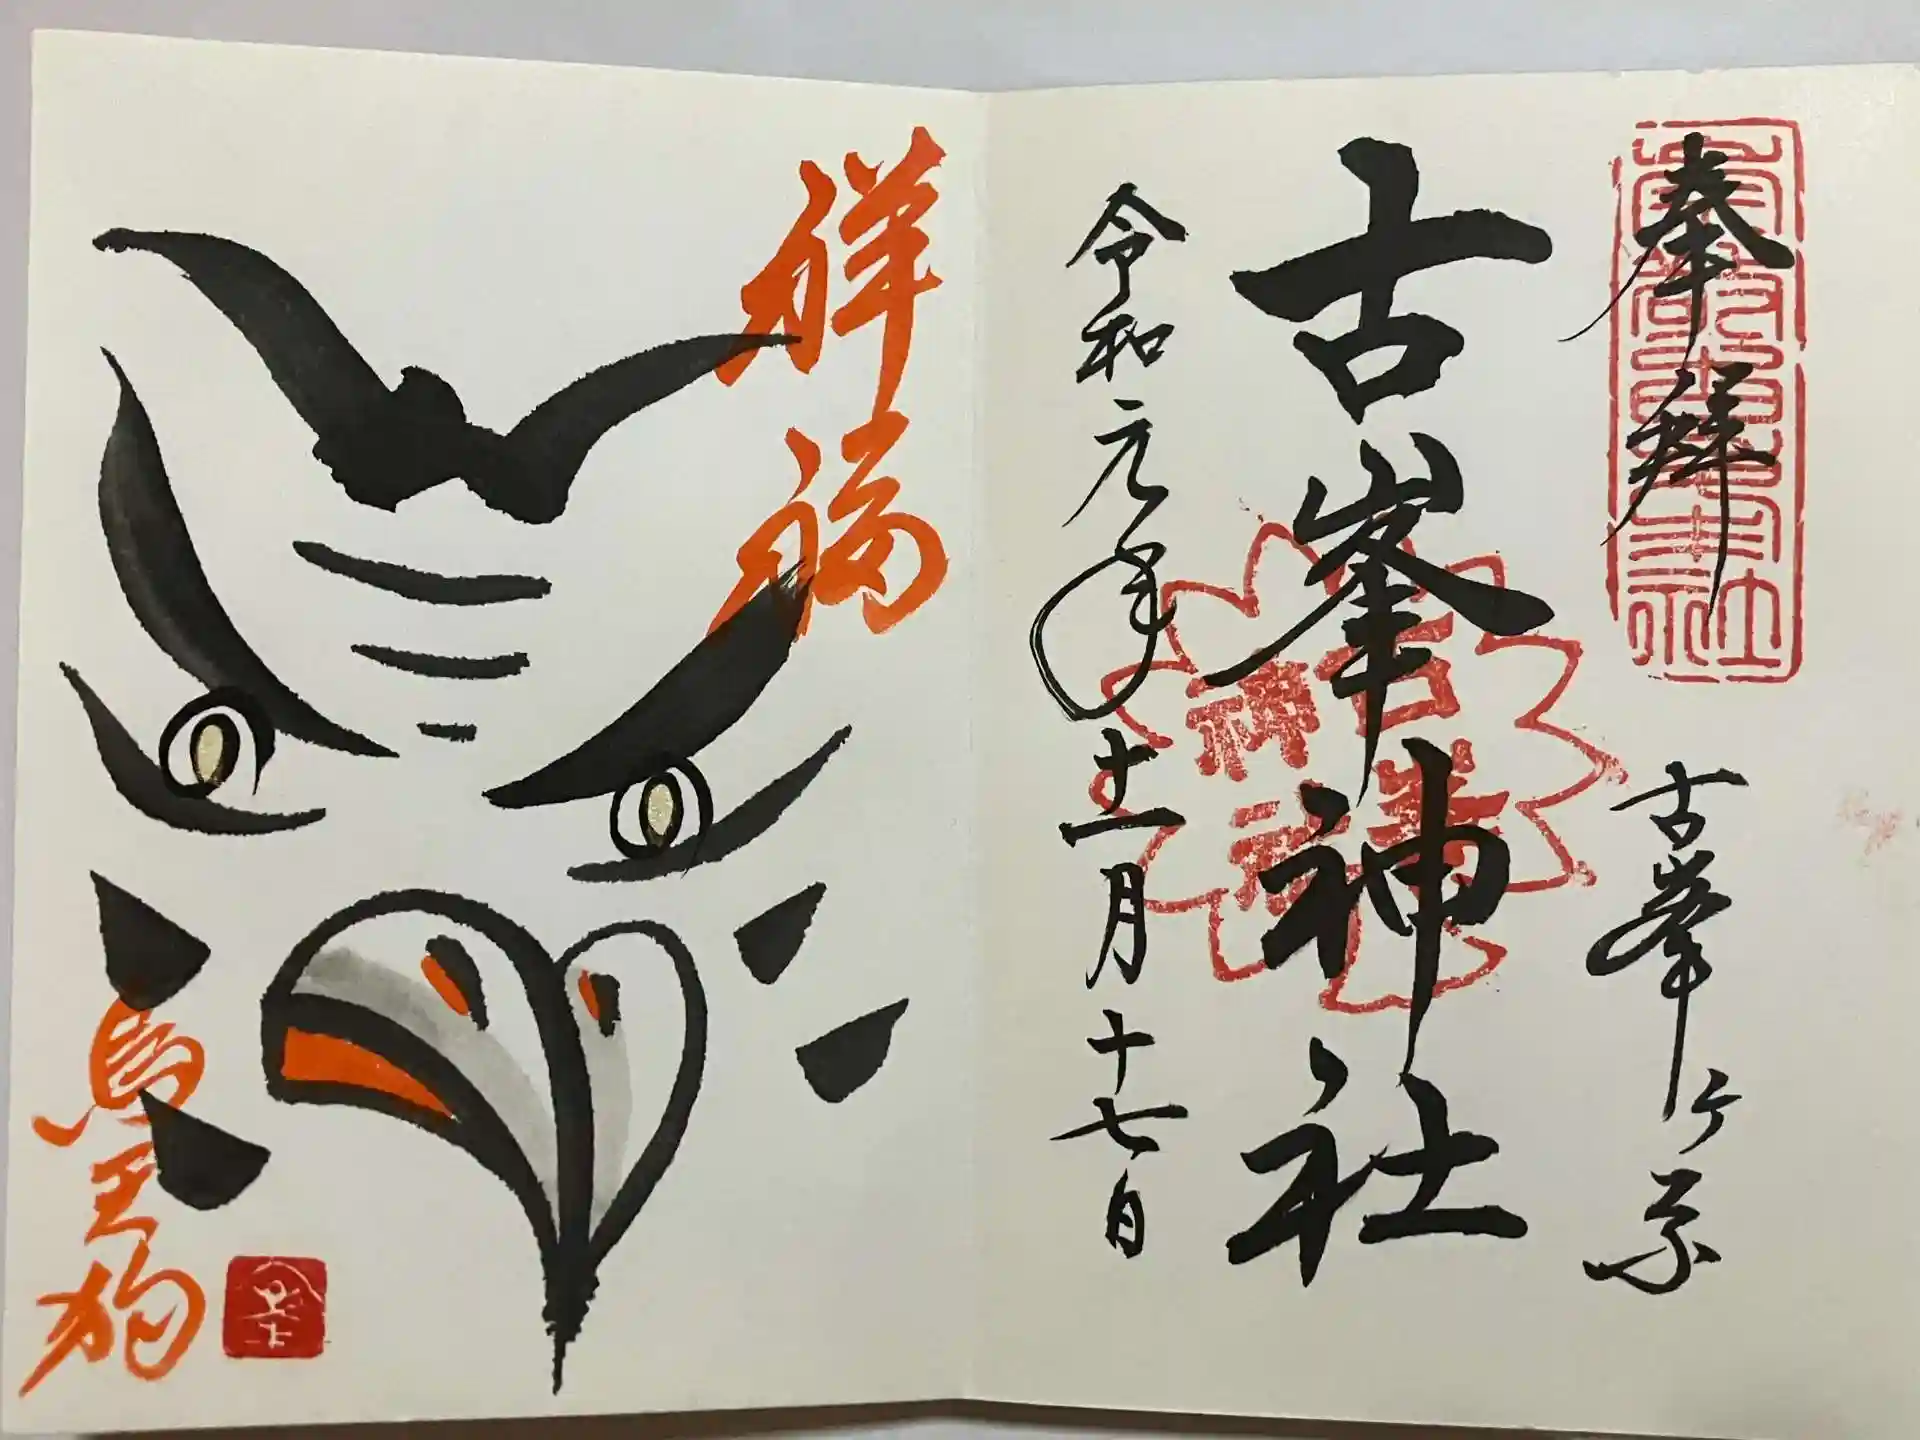 奉拝
古峯ヶ原
古峯神社
古峯神社
令和元年十一月十七日
祥福
烏天狗